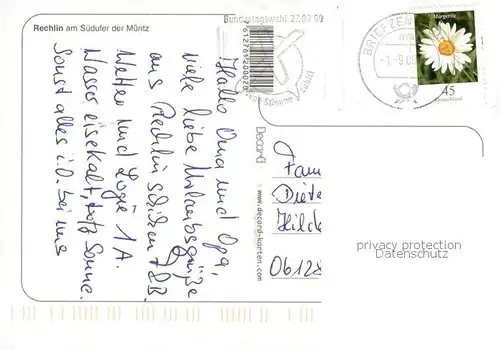 Rechlin am Südufer der Müritz
Hallo Oma und Opa,
viele liebe Urlaubsgrüße
aus Rechlin schicken
Wetter und Logie 1A.
Wasser eisekalt, trotz Sonne.
Sonst alles i.O. bei uns
Bundestagswahl 27.09.09
7612761200020
Decard
www.decard-karten.com
BRIEFZEN
Margerite
45
Deutschland
Fam
Diete
Hilde
privacy protection
Datenschutz